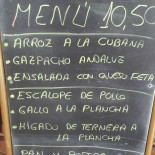 MENÚ 10,50
• ARROZ A LA CUBANA
• GAZPACHO ANDALUZ
• ENSALADA CON QUESO FETA
• ESCALOPE DE POLLO
• GALLO A LA PLANCHA
• HÍGADO DE TERNERA A
LA PLANCHA
PAN Y